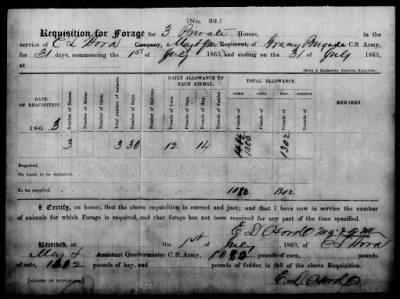 (No. 32.)
Requisition for Forage for 3 Private Horses, in the
service of E D Hord Company, Maj Regiment, of Gracie Brigade C.S. Army,
for 31 days, commencing the 1st of July 1863, and ending on the 31 of July, 1863,
at
DATE OF REQUISITION. Number of Horses. Number of Mules. Total number of animals Number of Days. Number of Rations. DAILY ALLOWANCE TO EACH ANIMAL. Pounds of Corn. Pounds of Hay. TOTAL ALLOWANCE. CORN. OATS. HAY. REMARKS.
186 3
3 3 30 12 14 1080 1302
Required,
On hand, to be deducted,
To be supplied, 1080 1302
I Certify, on honor, that the above requisition is correct and just; and that I have now in service the number
of animals for which Forage is required, and that forage has not been received for any part of the time specified.
E D Hord Maj & QM
Received, at the 1st of July, 1863, of E D Hord
Maj & Assistant Quartermaster C.S. Army, 1080 pounds of corn, pounds
of oats, 1302 pounds of hay, and pounds of fodder, in full of the above Requisition.
[SIGNED IN DUPLICATE.] E D Hord